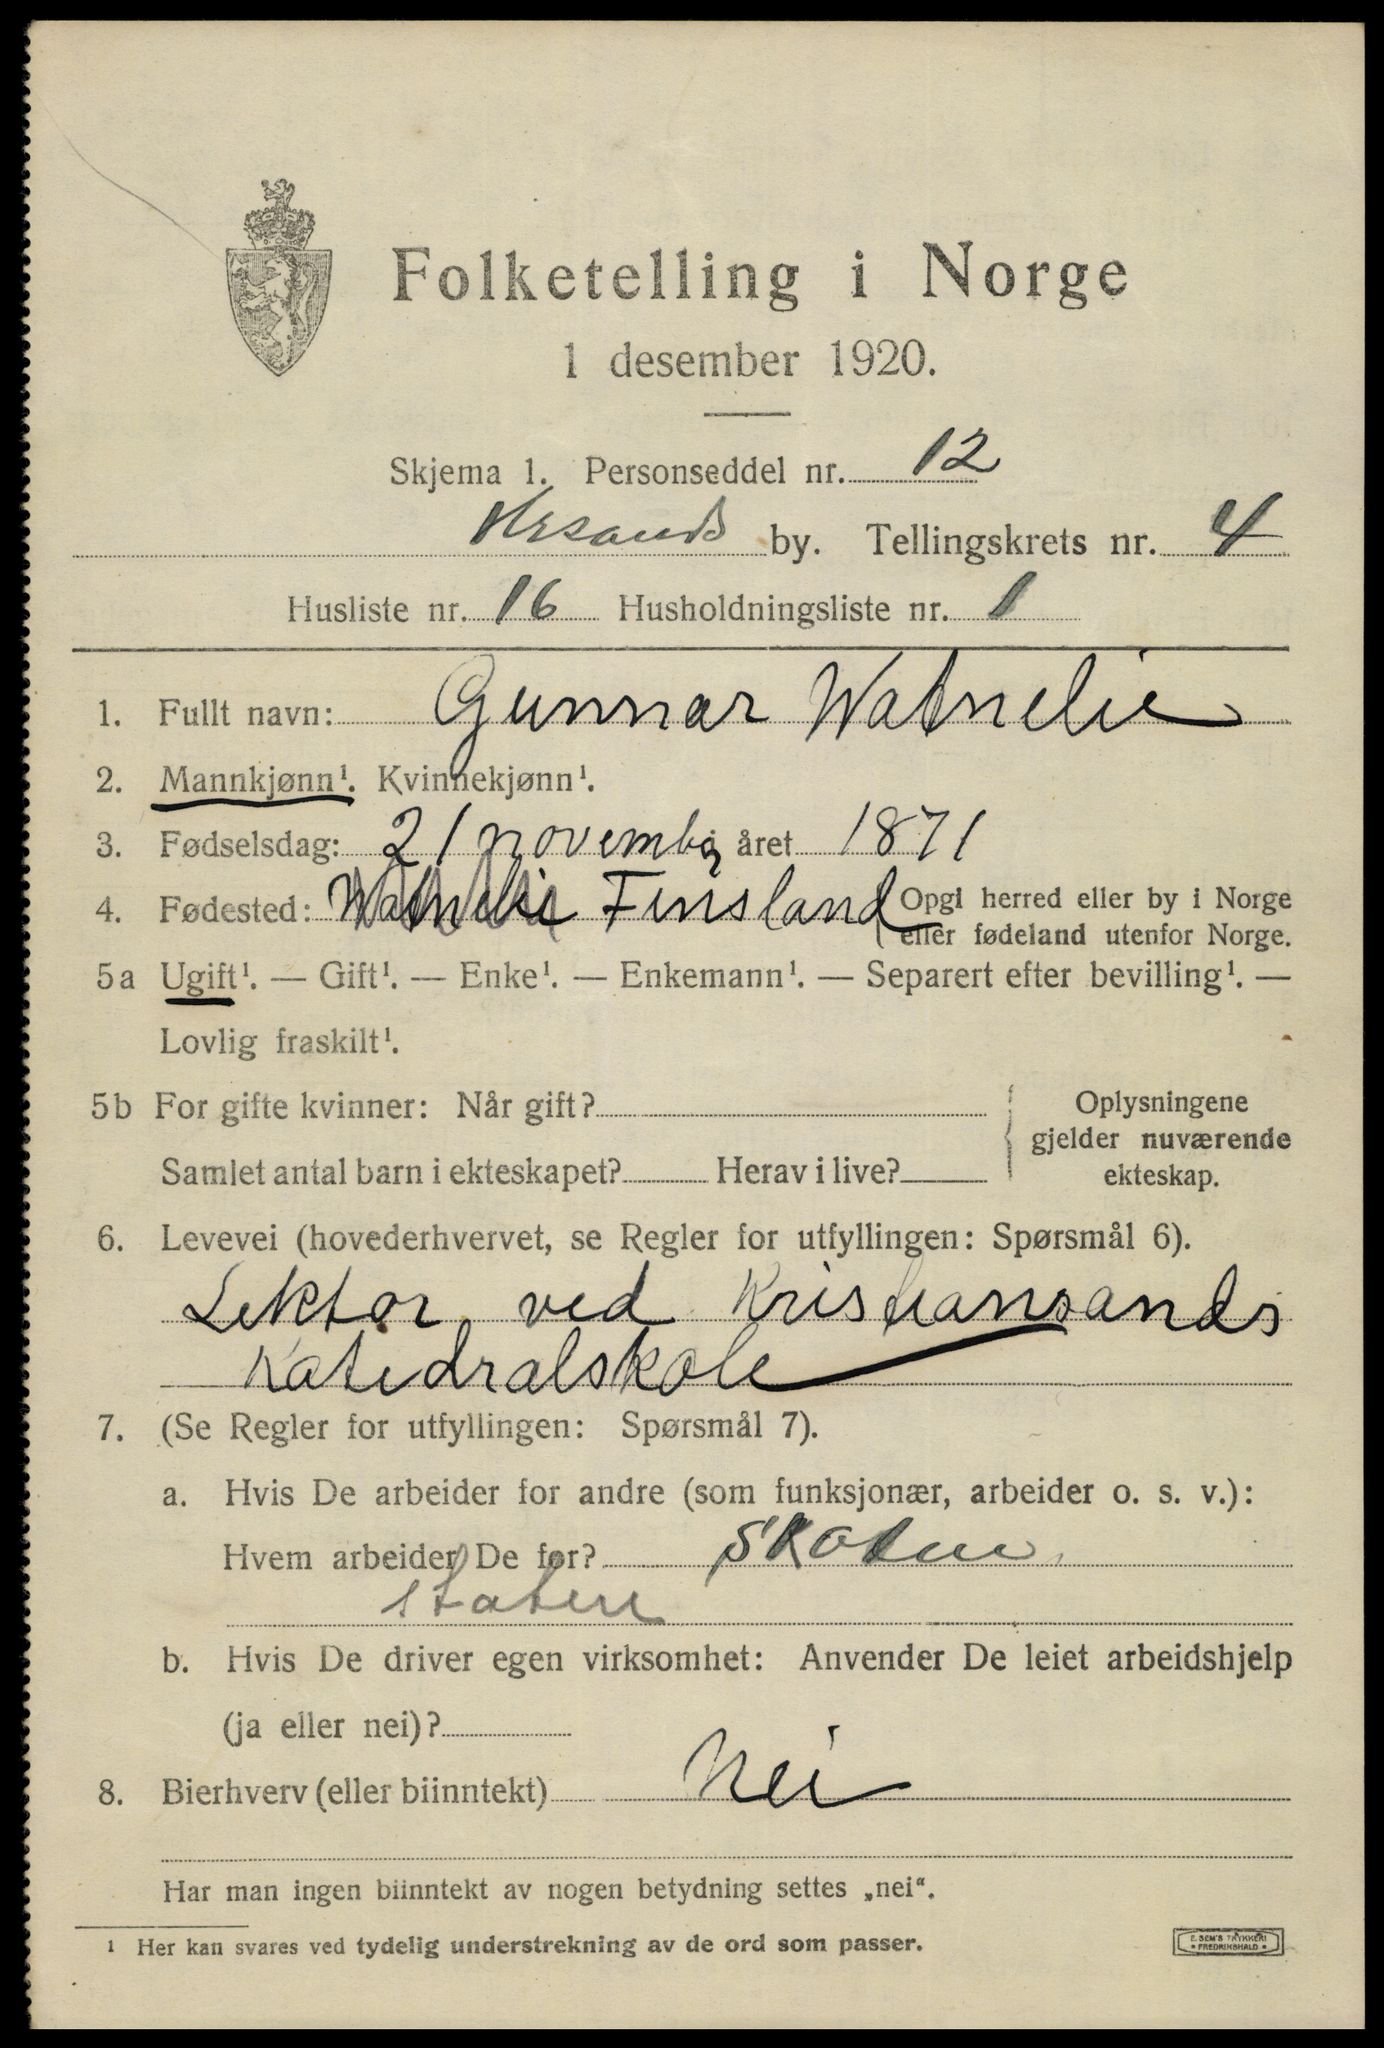 Folketelling i Norge
1 desember 1920.
Skjema 1. Personseddel nr. 12
Krsands by. Tellingskrets nr. 4
Husliste nr. 16 Husholdningsliste nr. 1
1. Fullt navn: Gunnar Watnelie
2. Mannkjønn¹. Kvinnekjønn¹.
3. Fødselsdag: 21 novembr året 1871
4. Fødested: Watnelie Finsland Opgi herred eller by i Norge
eller fødeland utenfor Norge.
5a Ugift¹. — Gift¹. — Enke¹. — Enkemann¹. — Separert efter bevilling¹. —
Lovlig fraskilt¹.
5b For gifte kvinner: Når gift? Oplysningene
gjelder nuværende
Samlet antal barn i ekteskapet? Herav i live? ekteskap.
6. Levevei (hovederhvervet, se Regler for utfyllingen: Spørsmål 6).
Lektor ved Kristiansands
Katedralskole
7. (Se Regler for utfyllingen: Spørsmål 7).
a. Hvis De arbeider for andre (som funksjonær, arbeider o. s. v.):
Hvem arbeider De for?
staten
b. Hvis De driver egen virksomhet: Anvender De leiet arbeidshjelp
(ja eller nei)?
8. Bierhverv (eller biinntekt) Nei
Har man ingen biinntekt av nogen betydning settes „nei“.
¹ Her kan svares ved tydelig understrekning av de ord som passer.
E. SEM'S TRYKKERI
• FREDRIKSHALD •